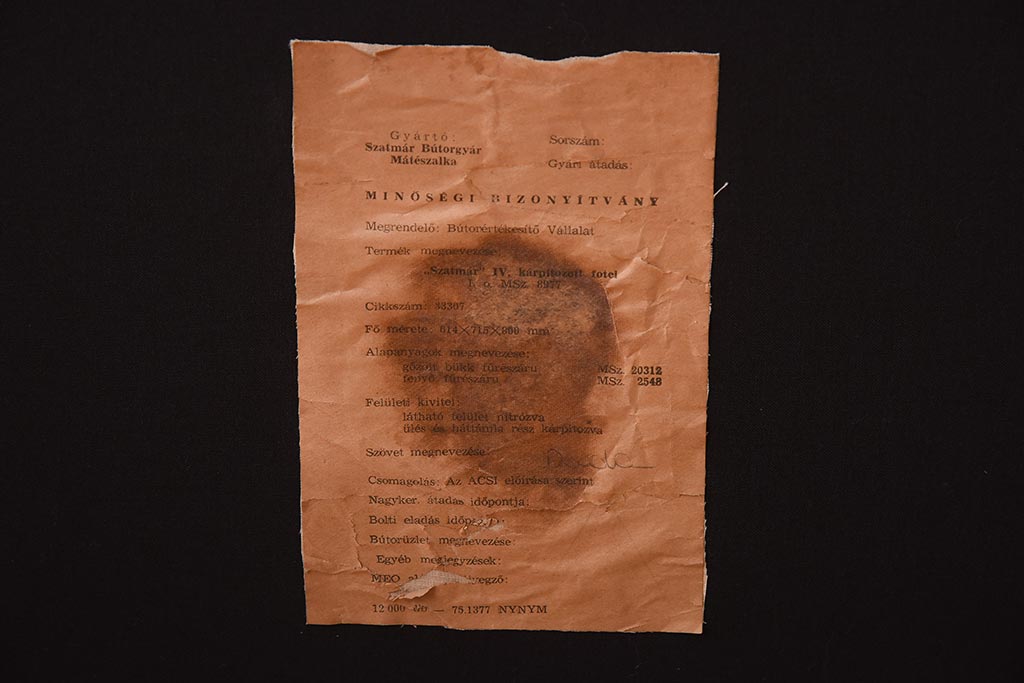 Gyártó:
Szatmár Bútorgyár
Mátészalka
Sorszám:
Gyári átadás:
MINŐSÉGI BIZONYÍTVÁNY
Megrendelő: Bútorértékesítő Vállalat
Termék megnevezése:
„Szatmár" IV. kárpitozott fotel
I. o. MSz. 8977
Cikkszám: 33307
Fő mérete: 614×715×800 mm
Alapanyagok megnevezése:
gőzölt bükk fűrészáru MSz. 20312
fenyő fűrészáru MSz. 2548
Felületi kivitel:
látható felület nitrózva
ülés és háttámla rész kárpitozva
Szövet megnevezése:
Csomagolás: Az ÁCSI előírása szerint
Nagyker. átadás időpontja:
Bolti eladás
Bútorüzlet megnevezése:
Egyéb megjegyzések:
MEO
12 000 — 75.1377 NYNYM